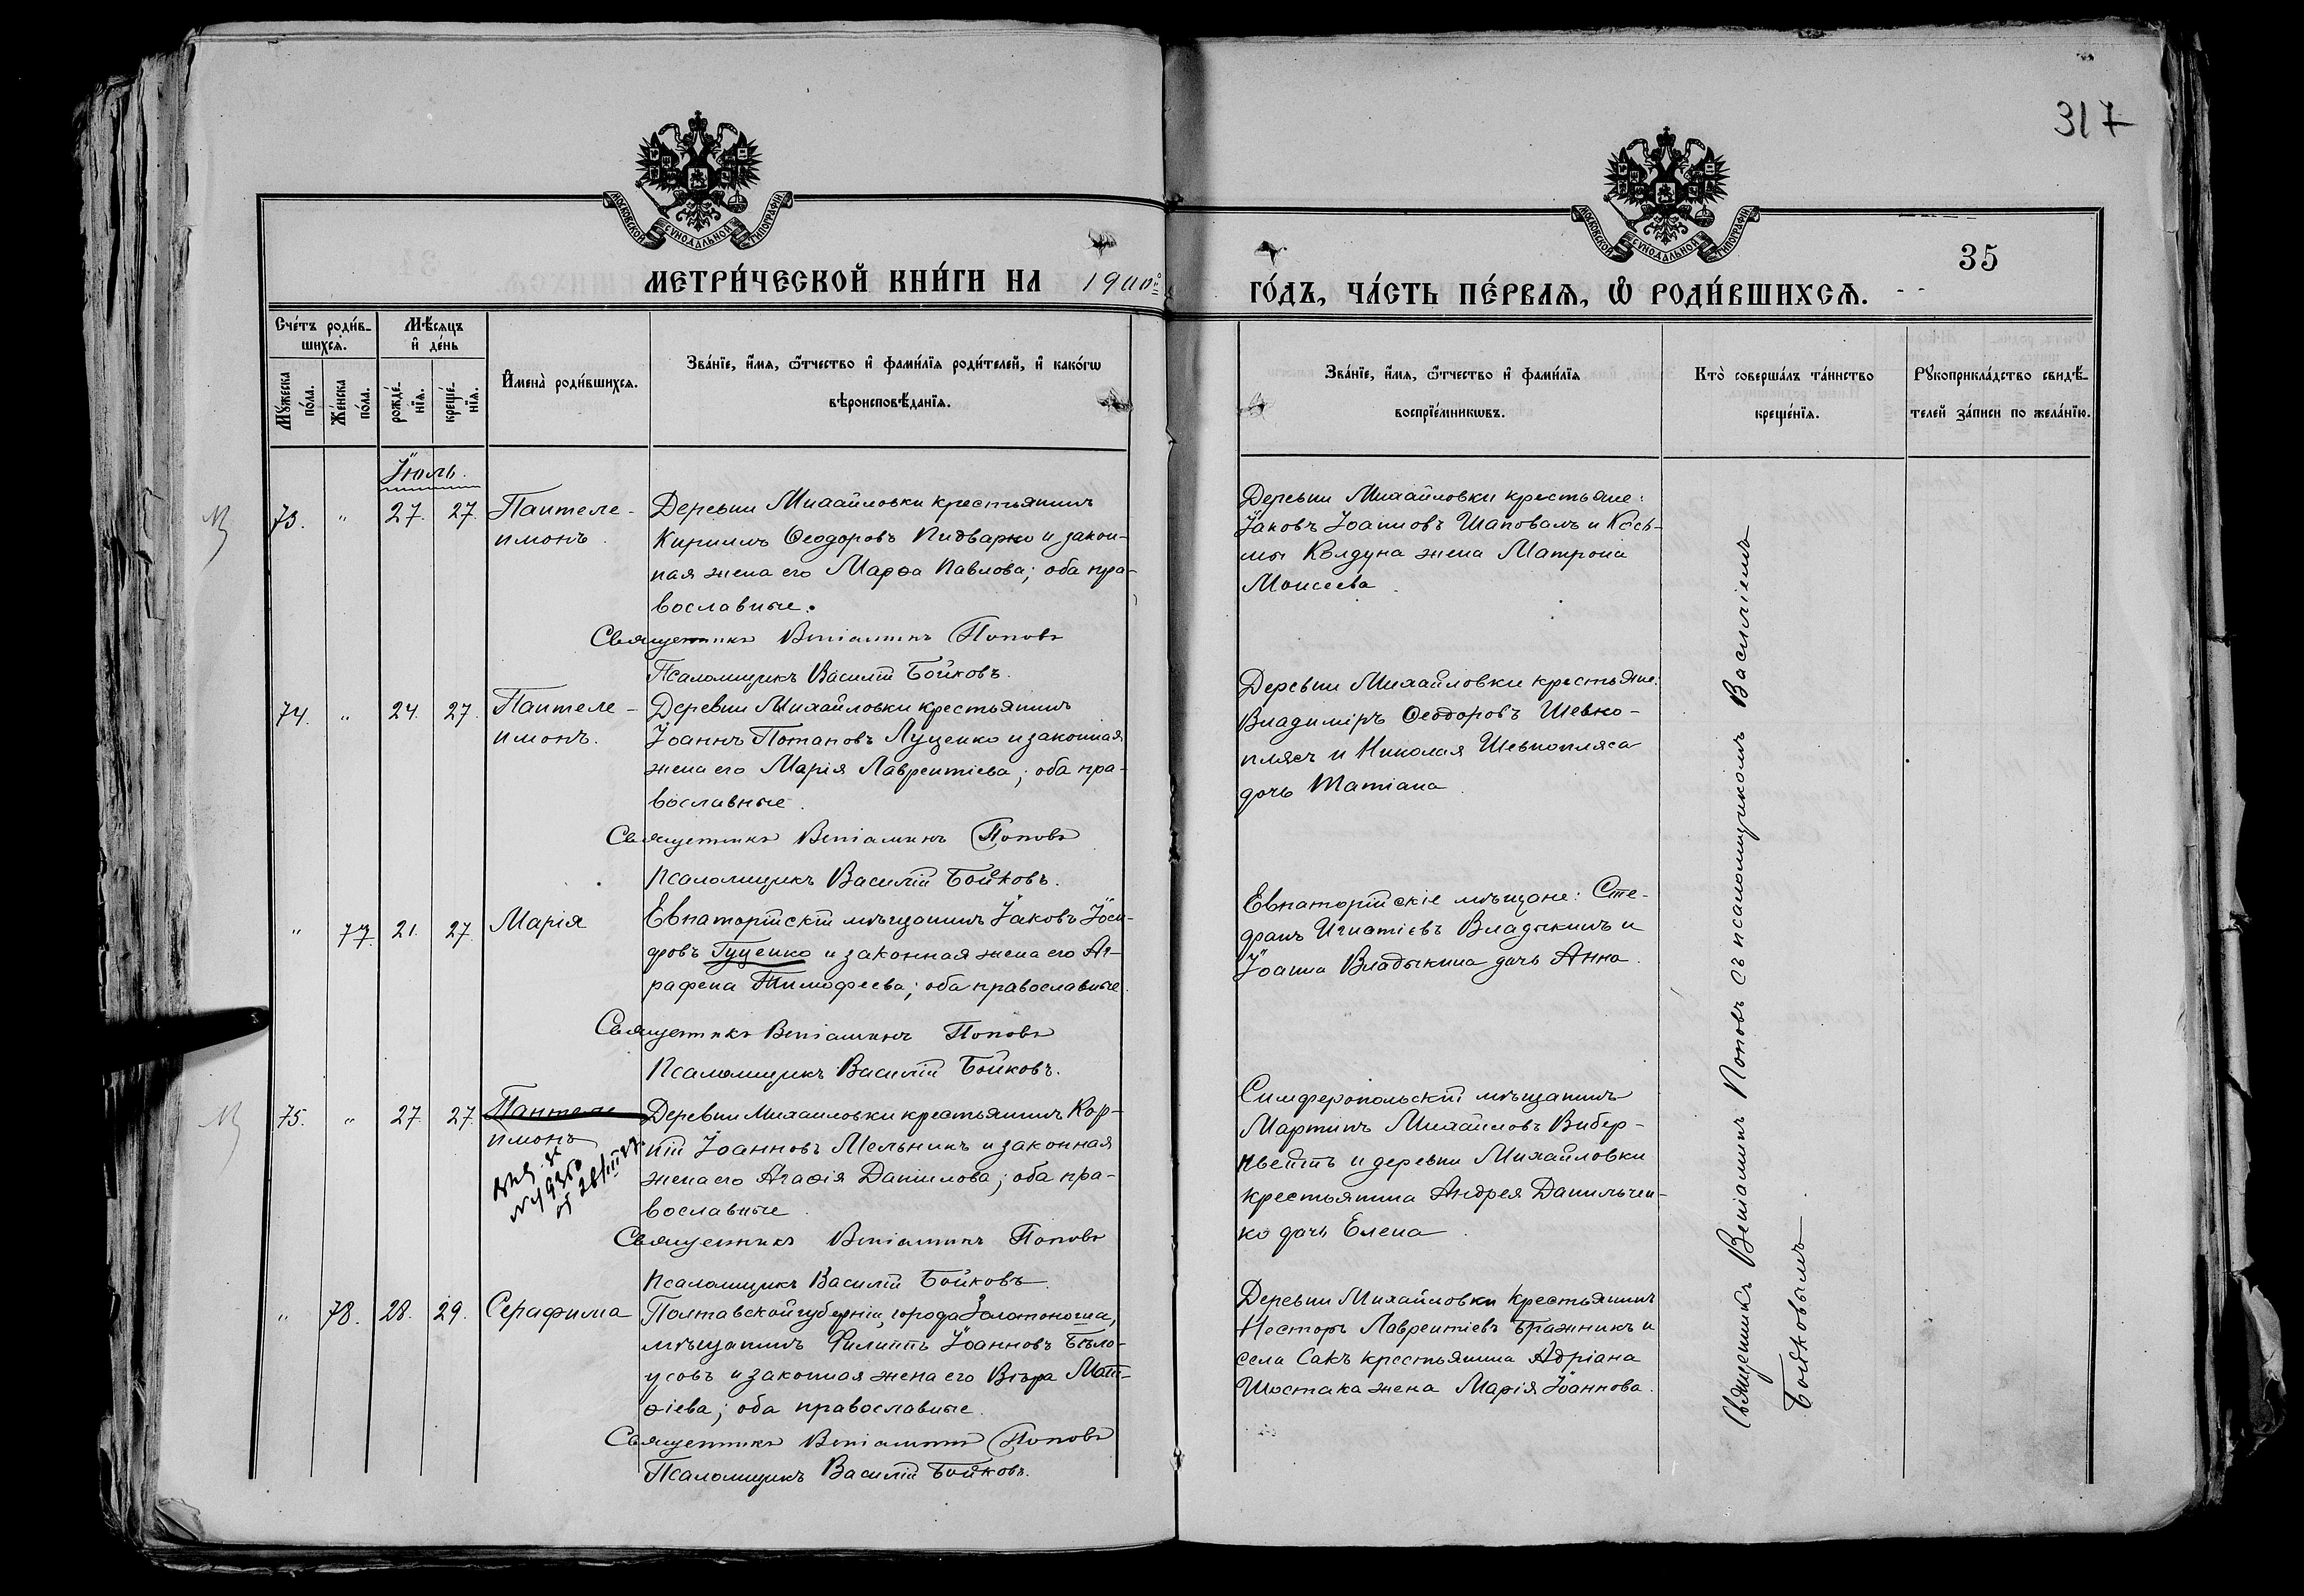 317
МОСКОВСКОЙ СУНОДАЛЬНОЙ ТИПОГРАФІИ
МОСКОВСКОЙ СУНОДАЛЬНОЙ ТИПОГРАФІИ
35
МЕТРИ́ЧЕСКОЙ КНИ́ГИ НА 1900й
ГО́ДЪ, ЧА́СТЬ ПЕ́РВАѦ, Ѡ҆ РОДИ́ВШИХСѦ.
Сче́тъ роди́в-
шихсѧ.
Мѣ́сѧцъ
и҆ де́нь
Мꙋ́жеска
по́ла.
Же́нска
по́ла.
рожде́-
нїѧ.
креще́-
нїѧ.
И҆мена̀ роди́вшихсѧ.
Зва́нїе, и҆́мѧ, ѻ҆́тчество и҆ фами́лїѧ роди́телей, и҆ како́гѡ
вѣроисповѣ́данїѧ.
Зва́нїе, и҆́мѧ, ѻ҆́тчество и҆ фами́лїѧ
воспрїе́мникѡвъ.
Кто̀ соверша́лъ та́инство
креще́нїѧ.
Рꙋкоприкла́дство свидѣ́-
телей за́писи по жела́нїю.
Іюль.
73. " 27. 27. Пантеле-
имонъ.
Деревни Михайловки крестьянинъ
Кириллъ Ѳеодоровъ Пидварко и закон-
ная жена его Марѳа Павлова; оба пра-
вославные.
Священникъ Веніаминъ Поповъ
Псаломщикъ Василій Бойковъ.
Деревни Михайловки крестьяне:
Іаковъ Іоанновъ Шаповалъ и Кось-
мы Колдуна жена Матрона
Моисеева.
74. " 24. 27. Пантеле-
имонъ.
Деревни Михайловки крестьянинъ
Іоаннъ Потаповъ Луценко и законная
жена его Марія Лаврентіева; оба пра-
вославные.
Священникъ Веніаминъ Поповъ
Псаломщикъ Василій Бойковъ.
Деревни Михайловки крестьяне:
Владиміръ Ѳеодоровъ Шевко-
плясъ и Николая Шевкопляса
дочь Татіана.
" 77. 21. 27. Марія
Евпаторійскій мѣщанинъ Іаковъ Іоси-
фовъ Гуценко и законная жена его Аг-
рафена Тимофеева; оба православные.
Священникъ Веніаминъ Поповъ
Псаломщикъ Василій Бойковъ.
Евпаторійскіе мѣщане: Сте-
фанъ Игнатіевъ Владыкинъ и
Іоанна Владыкина дочь Анна.
75. " 27. 27. Пантеле
имонъ
Деревни Михайловки крестьянинъ Кор-
ній Іоанновъ Мельникъ и законная
жена его Агаѳія Даніилова; оба пра-
вославные.
Священникъ Веніаминъ Поповъ
Псаломщикъ Василій Бойковъ.
Симферопольскій мѣщанинъ
Мартинъ Михайловъ Вибер-
квейтъ и деревни Михайловки
крестьянина Андрея Данильчен-
ко дочь Елена.
" 78. 28. 29. Серафима
Полтавской губерніи, города Золотоноша,
мѣщанинъ Филиппъ Іоанновъ Бѣло-
усовъ и законная жена его Вѣра Мат-
ѳіева; оба православные.
Священникъ Веніаминъ Поповъ
Псаломщикъ Василій Бойковъ.
Деревни Михайловки крестьянинъ
Несторъ Лаврентіевъ Бражникъ и
села Сакъ крестьянина Адріана
Шостака жена Марія Іоаннова.
Священникъ Веніаминъ Поповъ съ псаломщикомъ Василіемъ
Бойковымъ.